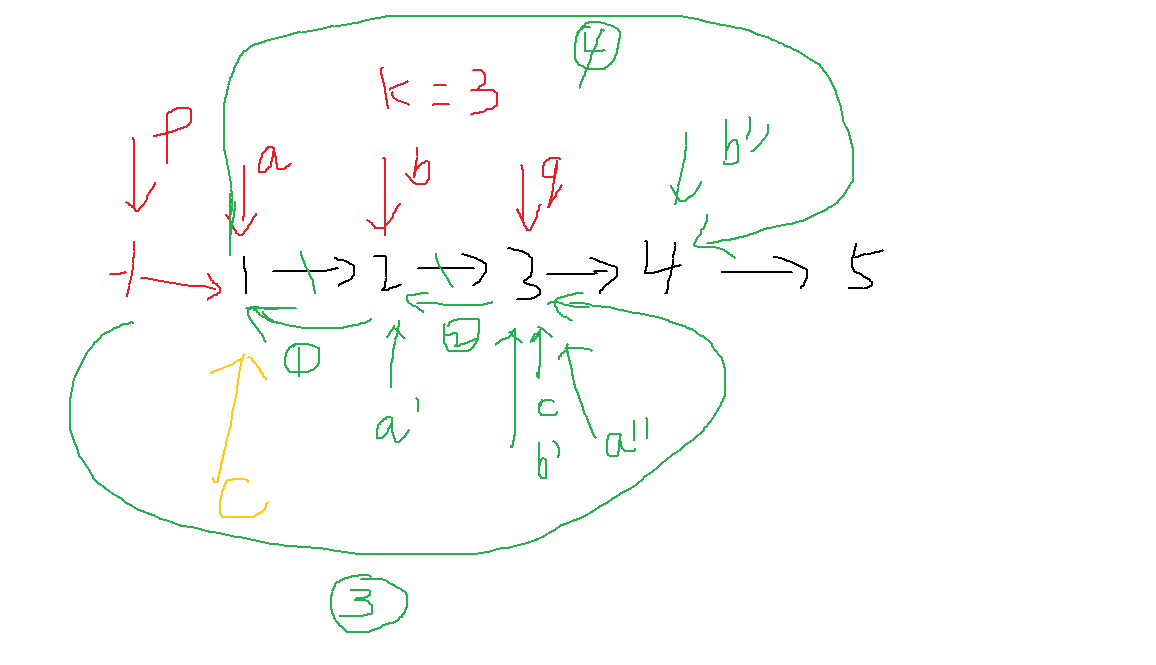 ④
k = 3
p
a
b
q
b''
-1 → 1 → 2 → 3 → 4 → 5
①
②
a'
c
b'
a''
C
③